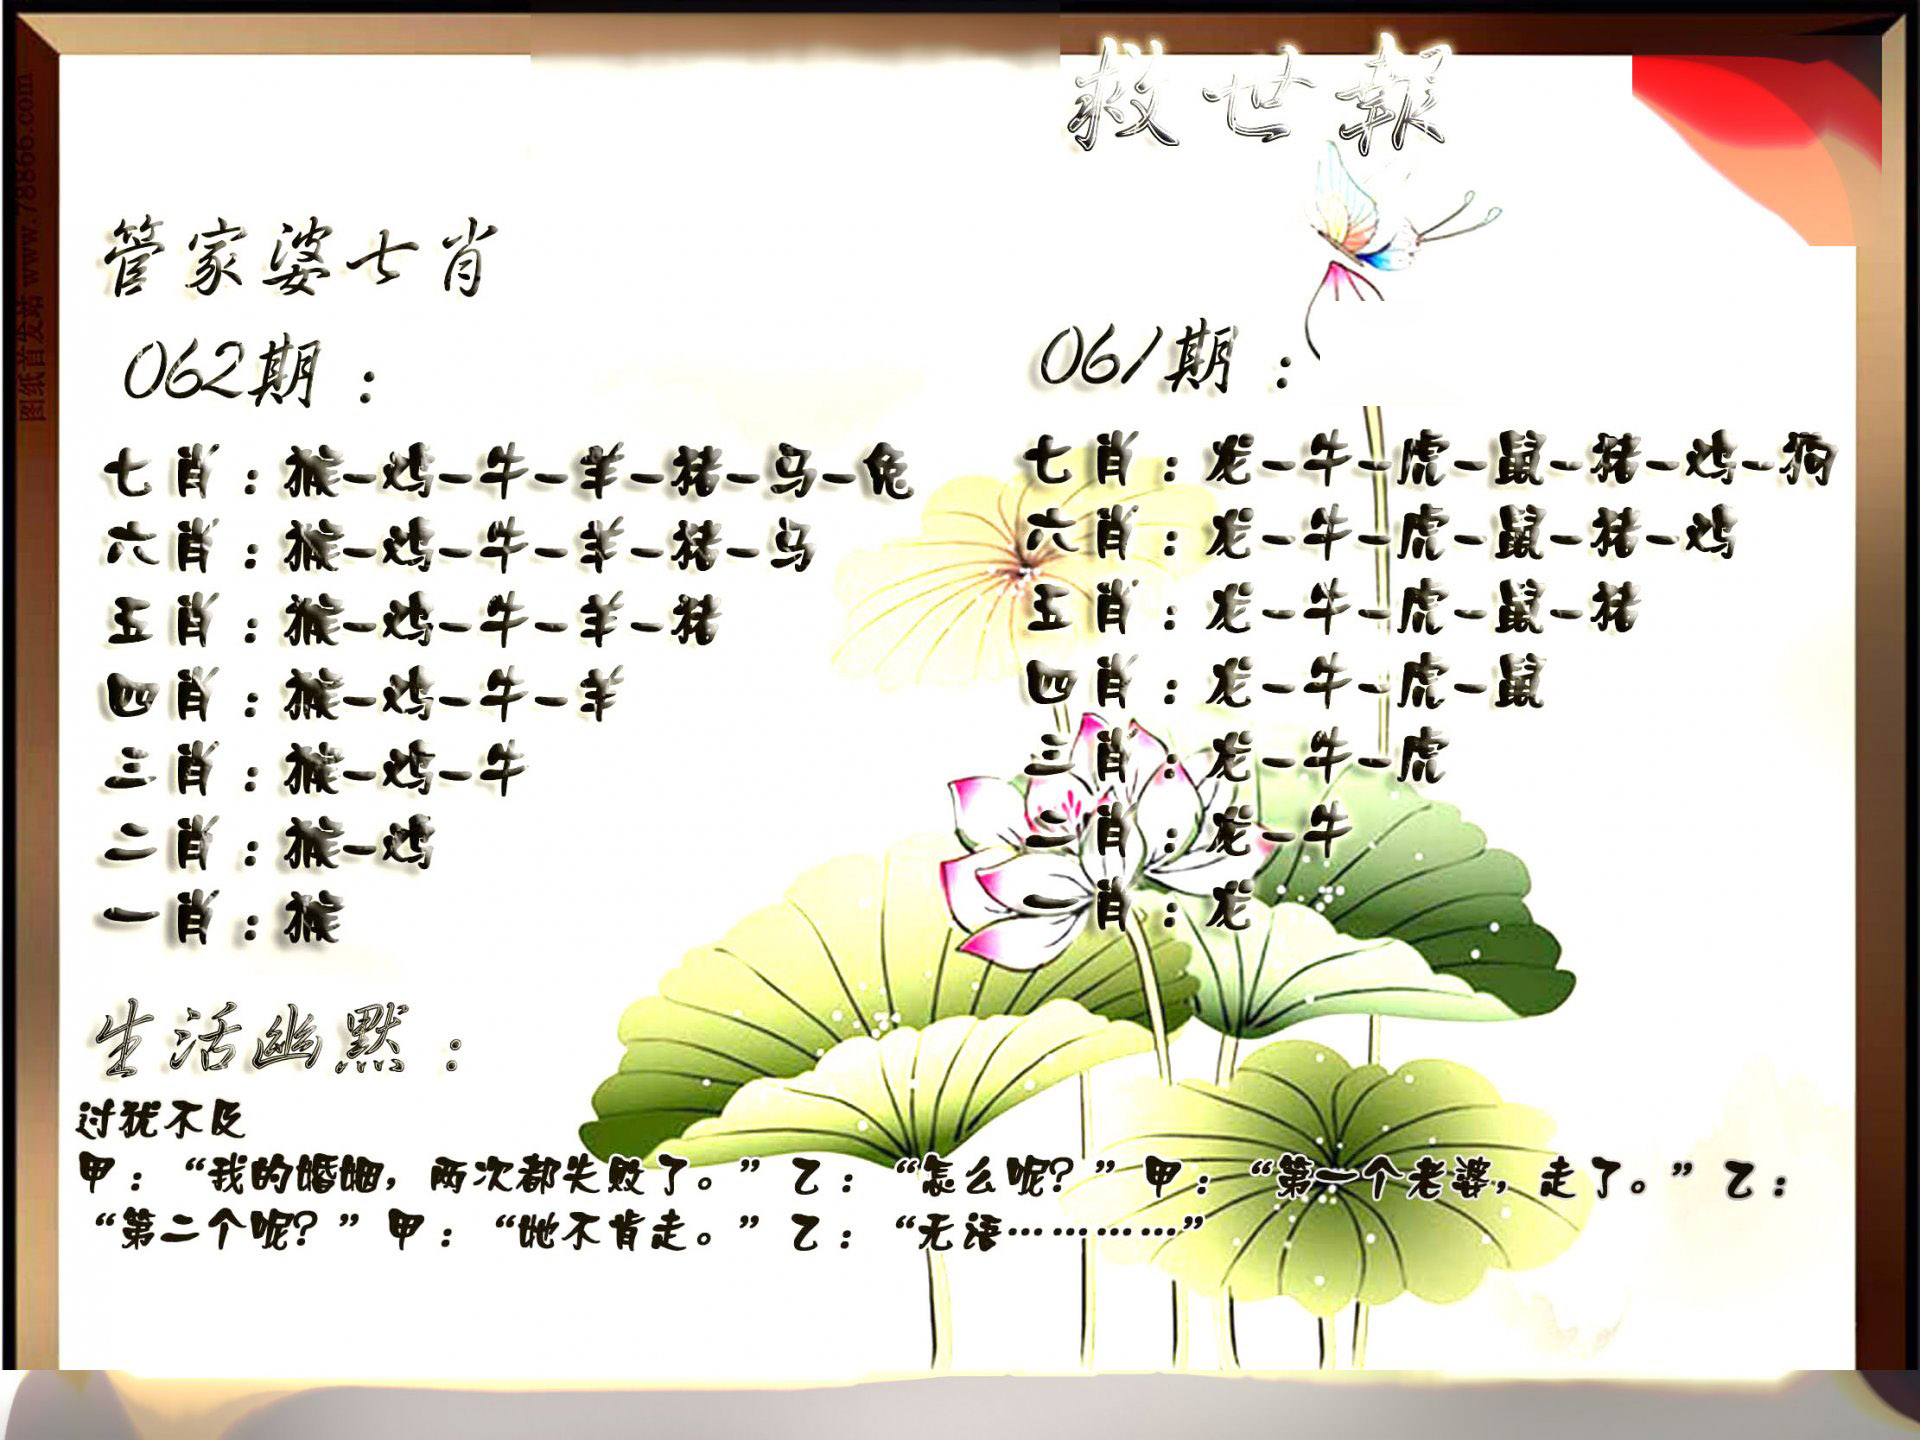 救世報
管家婆七肖
062期：
七肖：猴-鸡-牛-羊-猪-马-兔
六肖：猴-鸡-牛-羊-猪-马
五肖：猴-鸡-牛-羊-猪
四肖：猴-鸡-牛-羊
三肖：猴-鸡-牛
二肖：猴-鸡
一肖：猴
061期：
七肖：龙-牛-虎-鼠-猪-鸡-狗
六肖：龙-牛-虎-鼠-猪-鸡
五肖：龙-牛-虎-鼠-猪
四肖：龙-牛-虎-鼠
三肖：龙-牛-虎
二肖：龙-牛
一肖：龙
生活幽默：
过犹不及
甲：“我的婚姻，两次都失败了。”乙：“怎么呢？”甲：“第一个老婆，走了。”乙：
“第二个呢？”甲：“她不肯走。”乙：“无语…………”
图纸首发站 www.78866.com